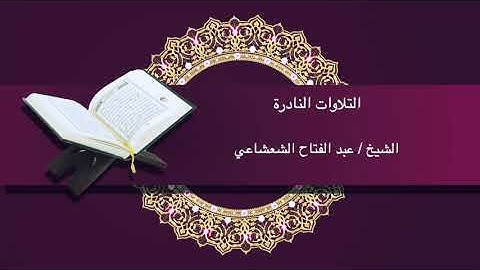 التلاوات النادرة
الشيخ / عبد الفتاح الشعشاعي